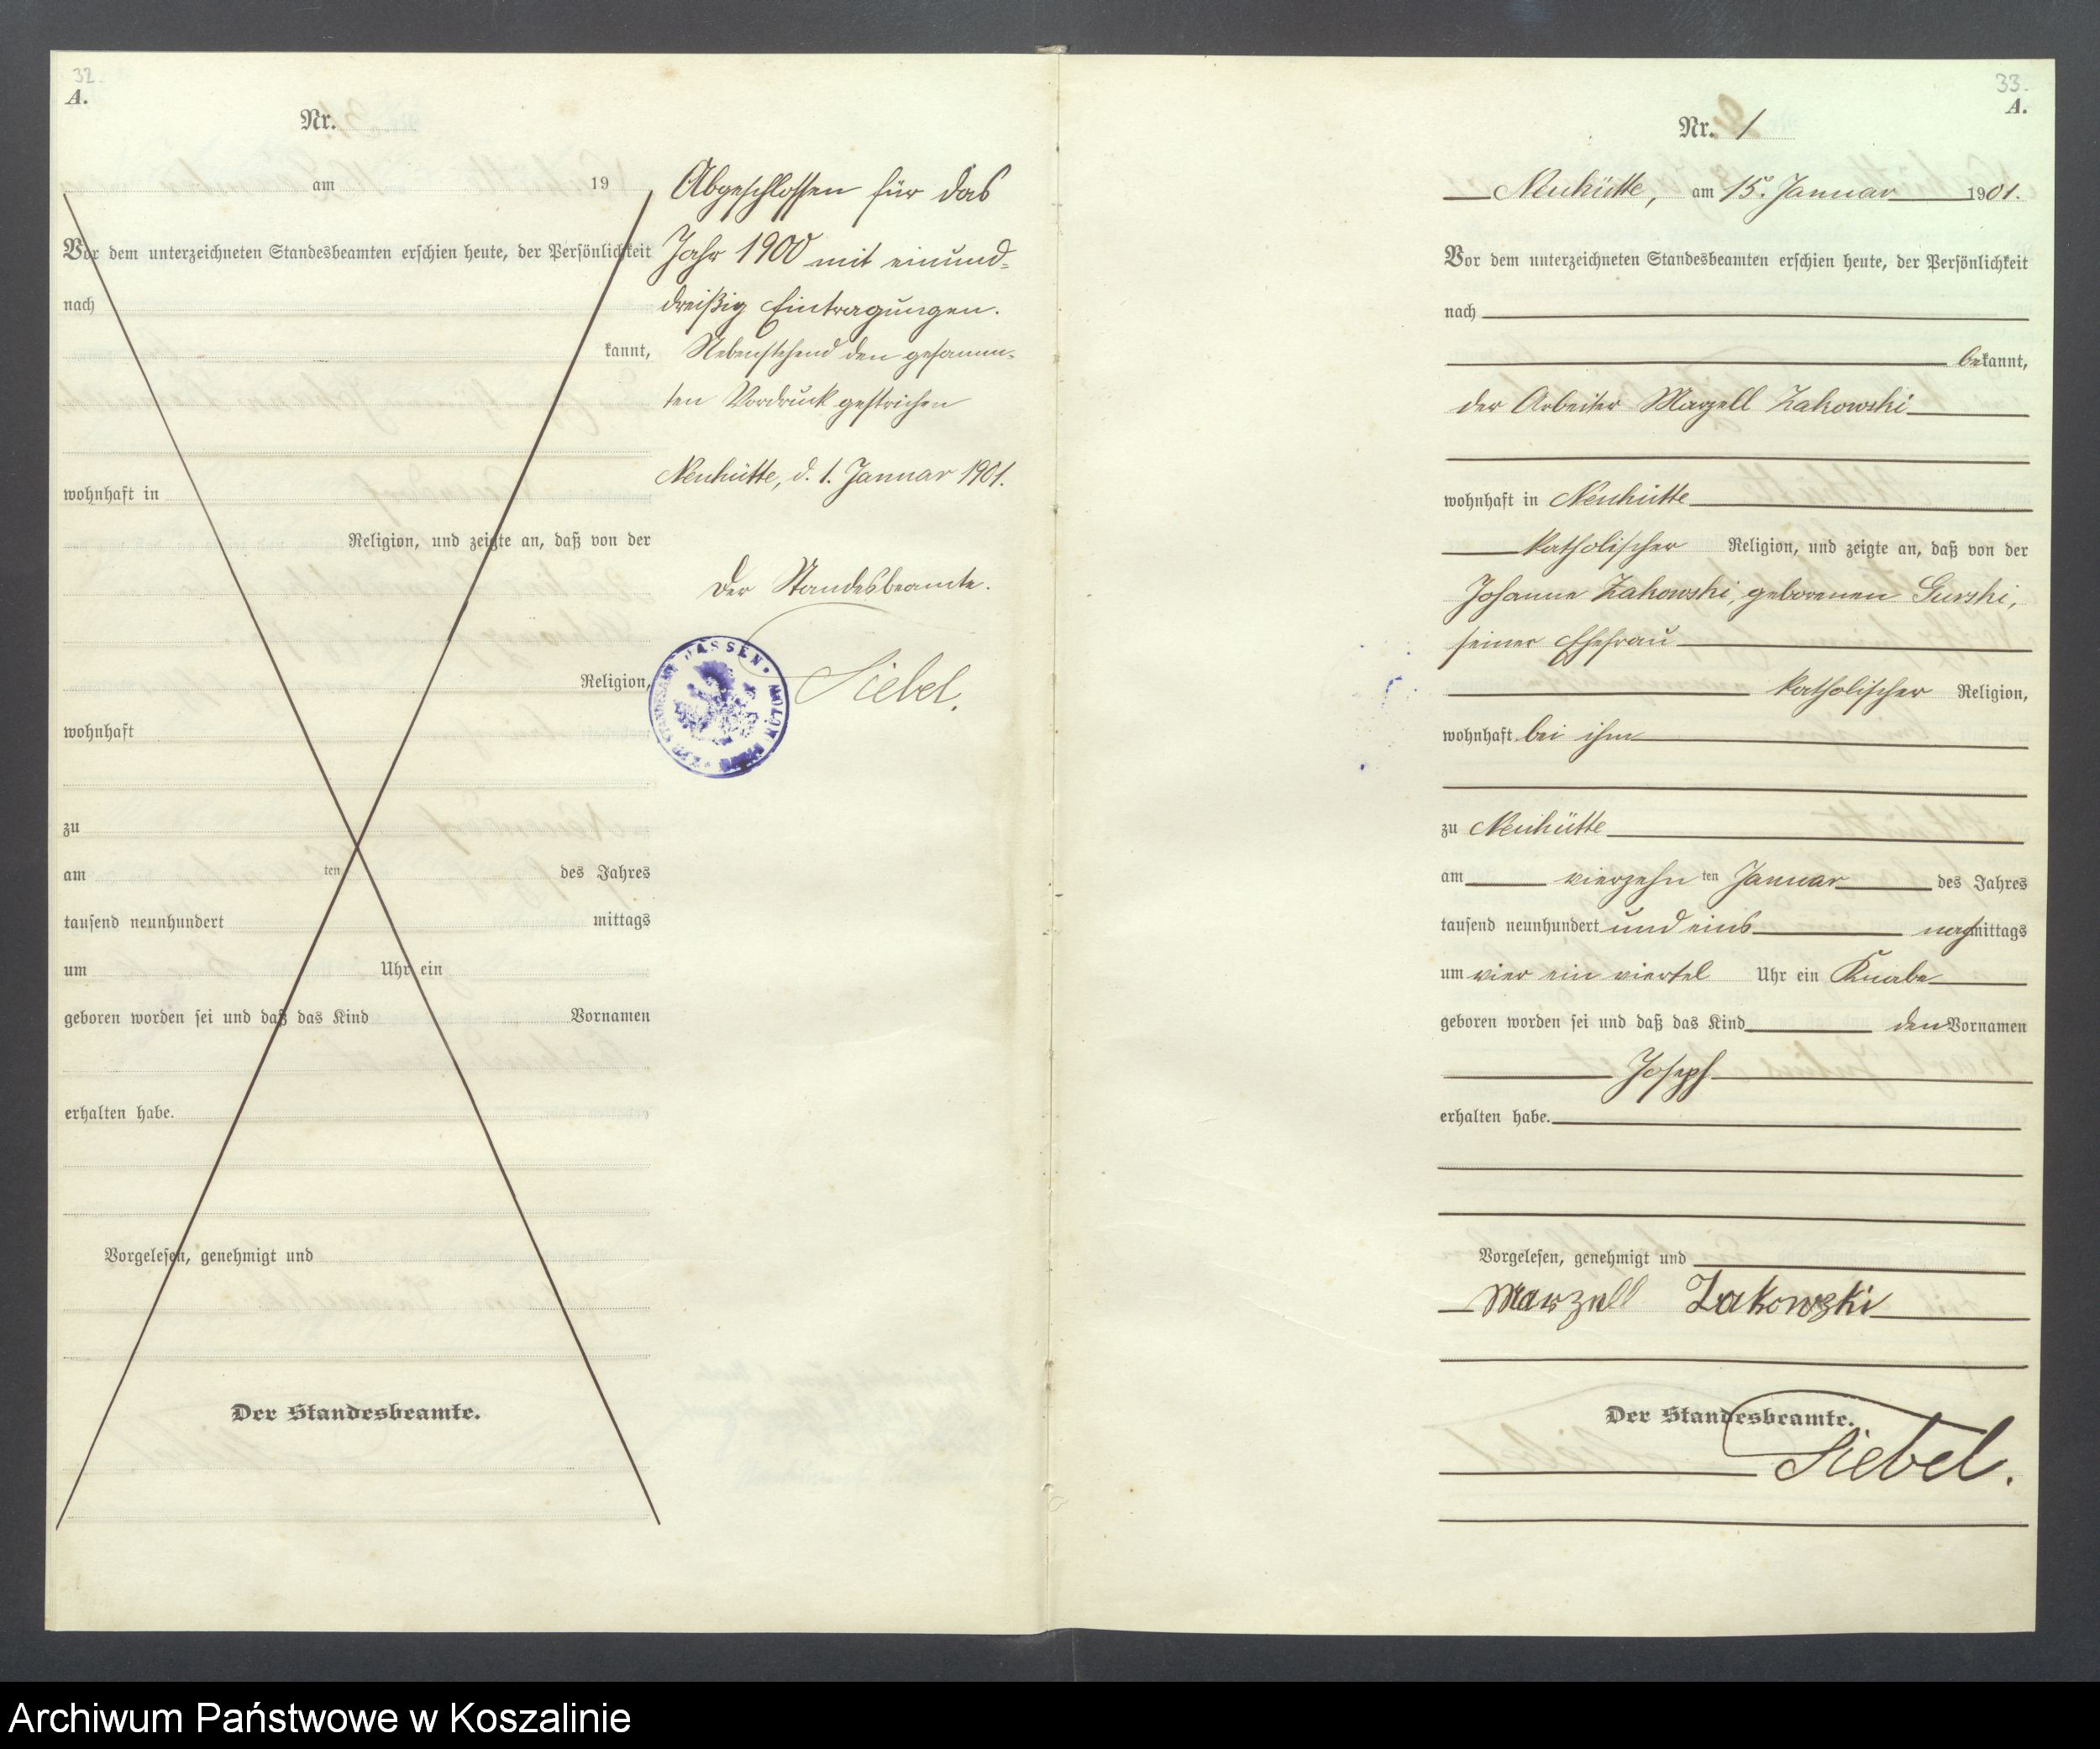 32.
A.
Nr.
am 19
Vor dem unterzeichneten Standesbeamten erschien heute, der Persönlichkeit
nach
kannt,
wohnhaft in
Religion, und zeigte an, daß von der
Religion,
wohnhaft
zu
am ten des Jahres
tausend neunhundert mittags
um Uhr ein
geboren worden sei und daß das Kind Vornamen
erhalten habe.
Vorgelesen, genehmigt und
Der Standesbeamte.
Abgeschlossen für das
Jahr 1900 mit einund-
dreißig Eintragungen.
Nebenstehend den gesamm-
ten Vordruck gestrichen
Neuhütte, d. 1. Januar 1901.
Der Standesbeamte.
Siebel.
33.
A.
Nr. 1
Neuhütte, am 15. Januar 1901.
Vor dem unterzeichneten Standesbeamten erschien heute, der Persönlichkeit
nach
bekannt,
der Arbeiter Marzell Zakowski
wohnhaft in Neuhütte
katholischer Religion, und zeigte an, daß von der
Johanna Zakowski, geborenen Gurski,
seiner Ehefrau
katholischer Religion,
wohnhaft bei ihm
zu Neuhütte
am vierzehn ten Januar des Jahres
tausend neunhundert und eins nachmittags
um vier ein viertel Uhr ein Knabe
geboren worden sei und daß das Kind den Vornamen
Joseph
erhalten habe.
Vorgelesen, genehmigt und
Marzell Zakowski
Der Standesbeamte.
Siebel.
Archiwum Państwowe w Koszalinie